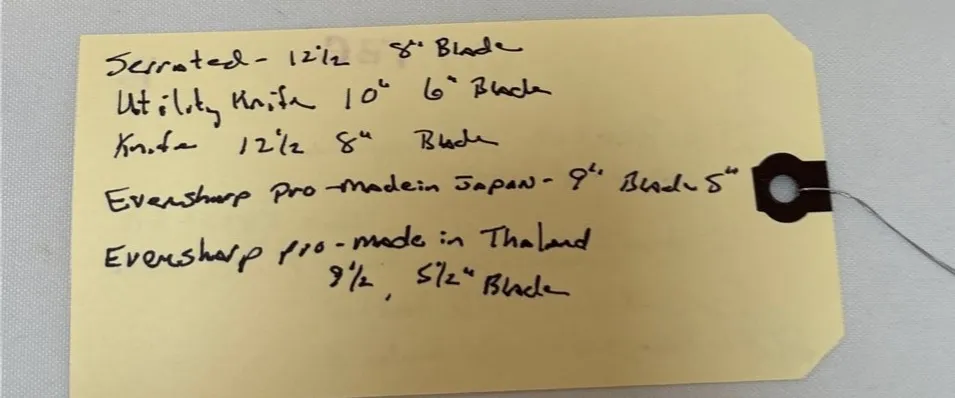 Serrated - 12 1/2 8" Blade
Utility Knife 10" 6" Blade
Knife 12 1/2 8" Blade
Eversharp Pro - made in JAPAN - 9" Blade 5"
Eversharp pro - made in Thaland
9 1/2, 5 1/2" Blade